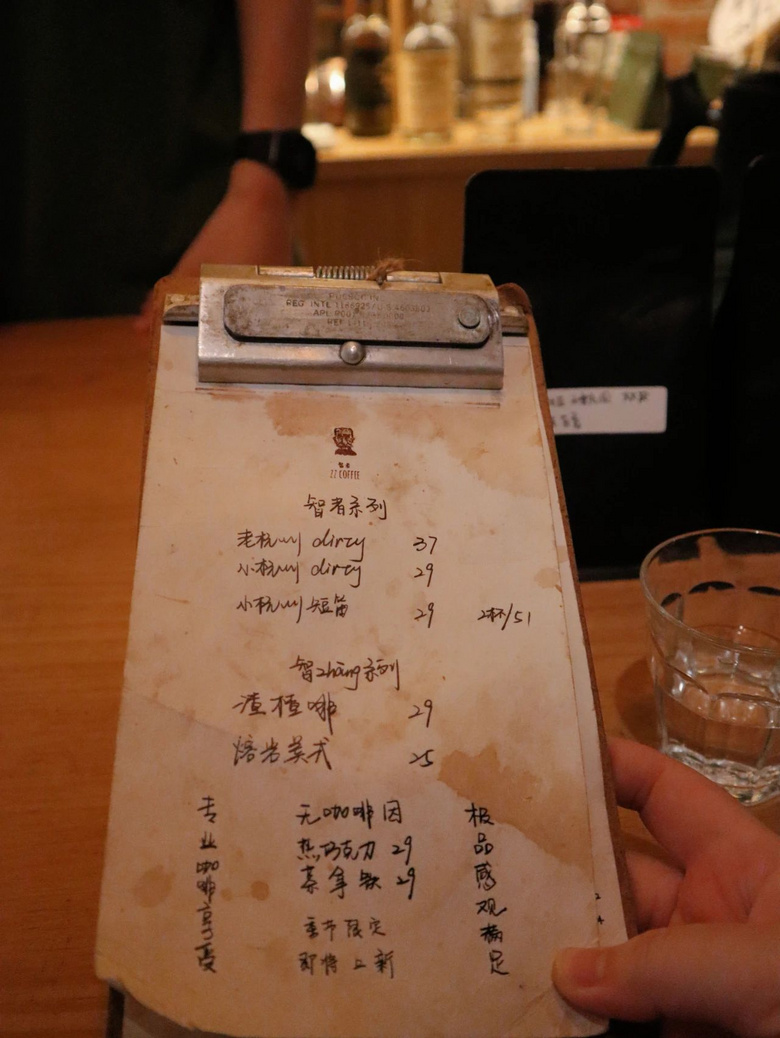 智者
ZZ COFFEE
智者系列
老杭州 dirty 37
小杭州 dirty 29
小杭州 短笛 29 2杯/51
智zhàng系列
渣楂啡 29
熔岩美式 25
专业咖啡享受
无咖啡因
热巧克力 29
慕拿铁 29
季节限定
即将上新
极品感观满足